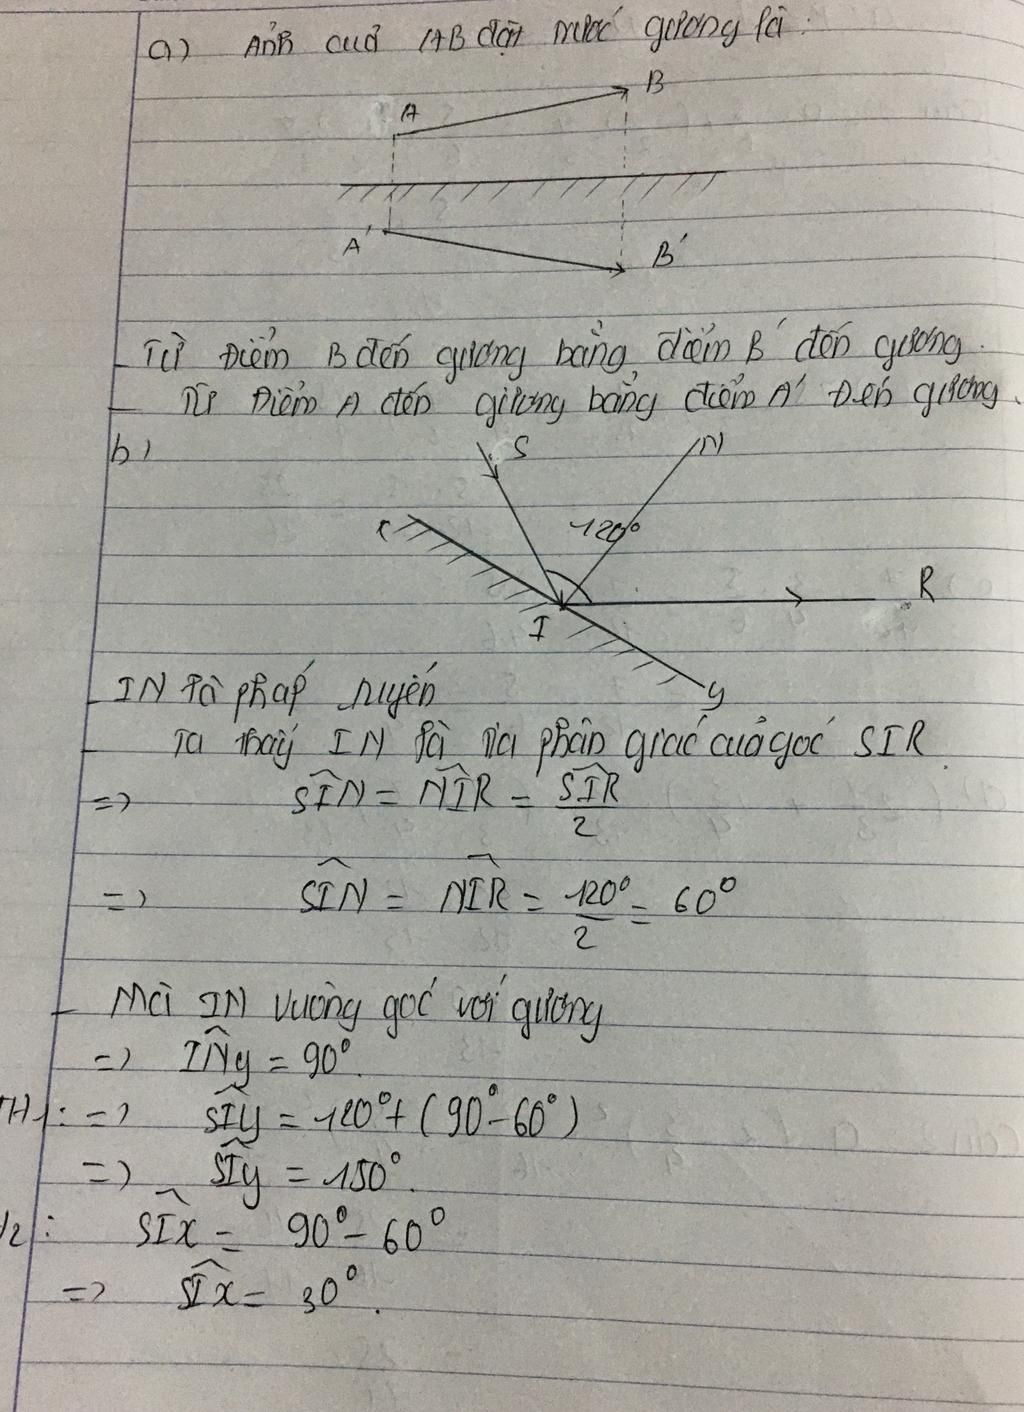 a) Ảnh của AB đặt trước gương là:
A
B
A'
B'
- Từ Điểm B đến gương bằng điểm B' đến gương.
- Từ Điểm A đến gương bằng điểm A' Đến gương.
b)
S
N
x
120°
R
I
y
- IN là pháp tuyến
- Ta thấy IN là tia phân giác của góc SIR.
=> SIN = NIR = SIR/2
=> SIN = NIR = 120°/2 = 60°
- Mà IN vuông góc với gương
=> INy = 90°.
TH1: => SIy = 120° + (90° - 60°)
=> SIy = 150°.
2: SIx = 90° - 60°
=> SIx = 30°.